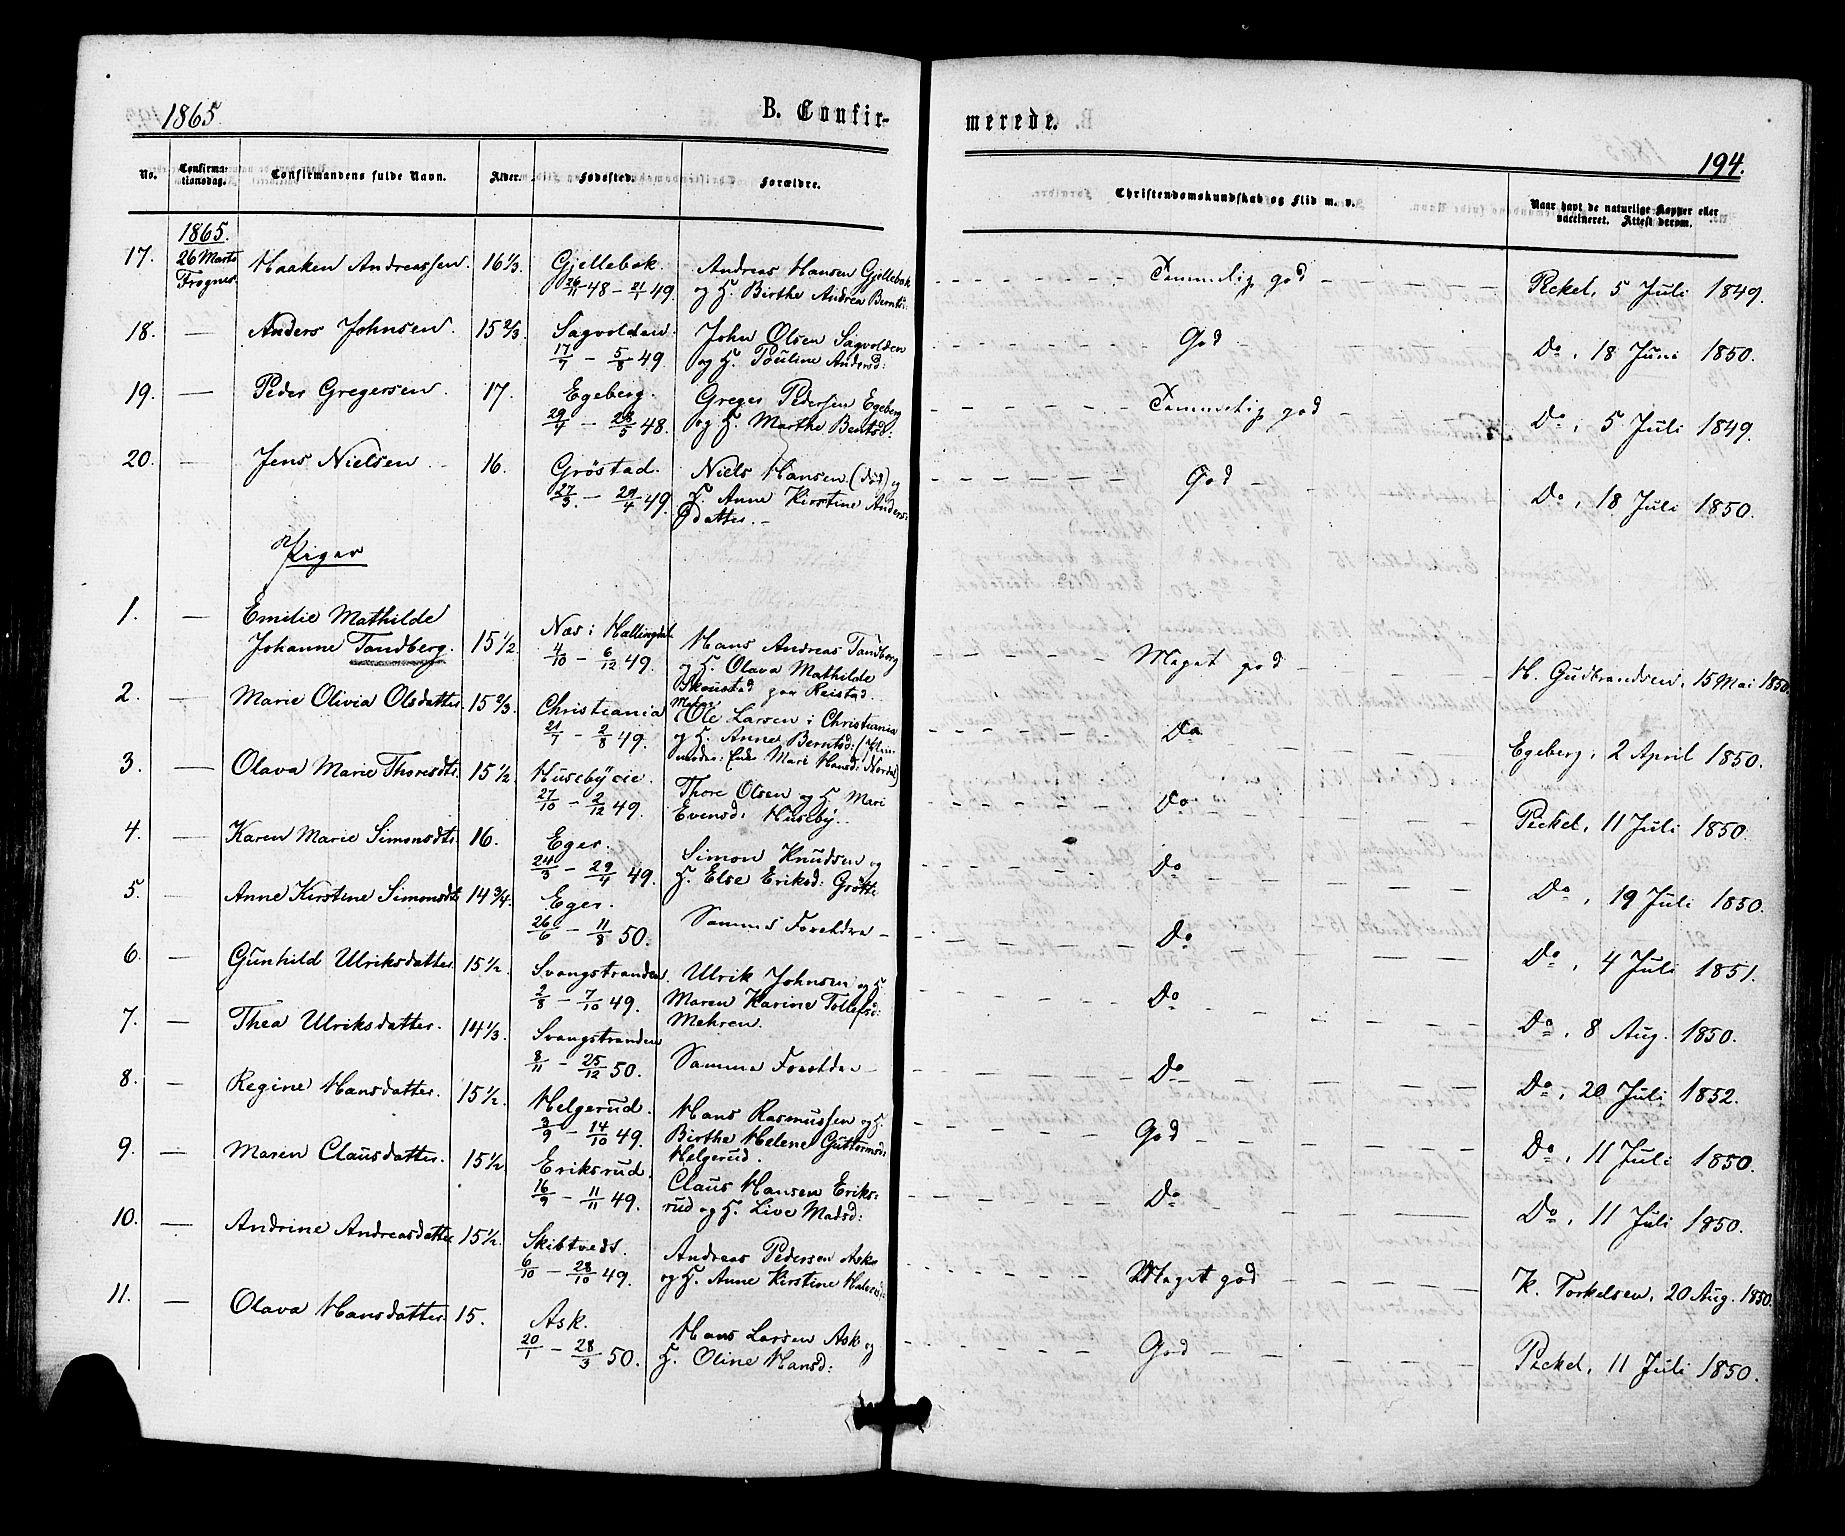 1865.
B. Confir-
merede.
194.
No.
Confirma-
tionsdag.
Confirmandens fulde Navn.
Alder.
Fødested.
Forældre.
Christendomskundskab og Flid m. v.
Naar havt de naturlige Kopper eller
vaccineret. Attest derom.
1865.
17. 26 Marts Haaken Andreassen. 16 1/3. Gjellebæk. Andreas Hansen Gjellebæk Temmelig god Peckel, 5 Juli 1849.
Frogner. 26/11 48 - 21/1 49. og H. Birthe Andrea Berntsd:
18. — Anders Johnsen. 15 2/3. Sagvolden. John Olsen Sagvolden God Do, 18 Juni 1850.
17/7 - 5/8 49. og H. Pouline Andersd:
19. — Peder Gregersen. 17. Egeberg. Greger Pedersen Egeberg Temmelig god Do, 5 Juli 1849.
29/4 - 28/5 48. og H. Marthe Bentsd:
20. — Jens Nielsen. 16. Gröstad. Niels Hansen (død) og God Do, 18 Juli 1850.
27/3. - 29/4 49. H. Anne Kirstine Anders:
datter.
Piger
1. — Emilie Mathilde
Johanne Tandberg. 15 1/2. Næs i Hallingdal. Hans Andreas Tandberg Meget god H. Gudbrandsen, 15 Mai 1850.
4/10 - 6/12 49. og H. Olava Mathilde
Skoustad paa Reistad.
2. — Marie Olivia Olsdatter. 15 2/3. Christiania Ole Larsen i Christiania Do Egeberg, 2 April 1850.
21/7 - 2/8 49. og H. Anne Berntsd:
Mari Hansd:
3. — Olava Marie Thoresdtr. 15 1/2 Husebyeie. Thore Olsen og H. Mari Do Peckel, 11 Juli 1850.
27/10 - 2/12 49. Evensd: Huseby.
4. — Karen Marie Simonsdtr. 16. Eger. Simon Knudsen og Do Do, 19 Juli 1850.
24/3 - 29/4 49. H. Else Eriksd: Grötte
5. — Anne Kirstine Simonsdtr 14 3/4. Eger. Samme Foreldre - Do Do, 4 Juli 1851.
26/6 - 11/8 50.
6. — Gunhild Ulriksdatter. 15 1/2. Svangstranden. Ulrik Johnsen og H. Do Do, 8 Aug. 1850.
2/8 - 7/10 49. Maren Karine Tollefsd:
Mehren.
7. — Thea Ulriksdatter. 14 1/3. Svangstranden Samme Foreldre - Do Do, 20 Juli 1852.
8/11 - 25/12 50.
8. — Regine Hansdatter. 15 1/2. Helgerud. Hans Rasmussen og H. God Do, 11 Juli 1850.
3/9 - 14/10 49. Birthe Helene Guttormsd:
Helgerud.
9. — Maren Clausdatter. 15 1/2 Eriksrud. Claus Hansen Eriks: Do Do, 11 Juli 1850.
16/9 - 11/11 49. rud og H. Live Madsd:
10. — Andrine Andreasdatter 15 1/2. Skibtvedt. Andreas Pedersen Ask Meget god K. Torkelsen, 20 Aug. 1850.
6/10 - 28/10 49. og H. Anne Kirstine
11. — Olava Hansdatter. 15. Ask. Hans Larsen Ask og God Peckel, 11 Juli 1850.
20/1 - 28/3 50. H. Oline Hansd: